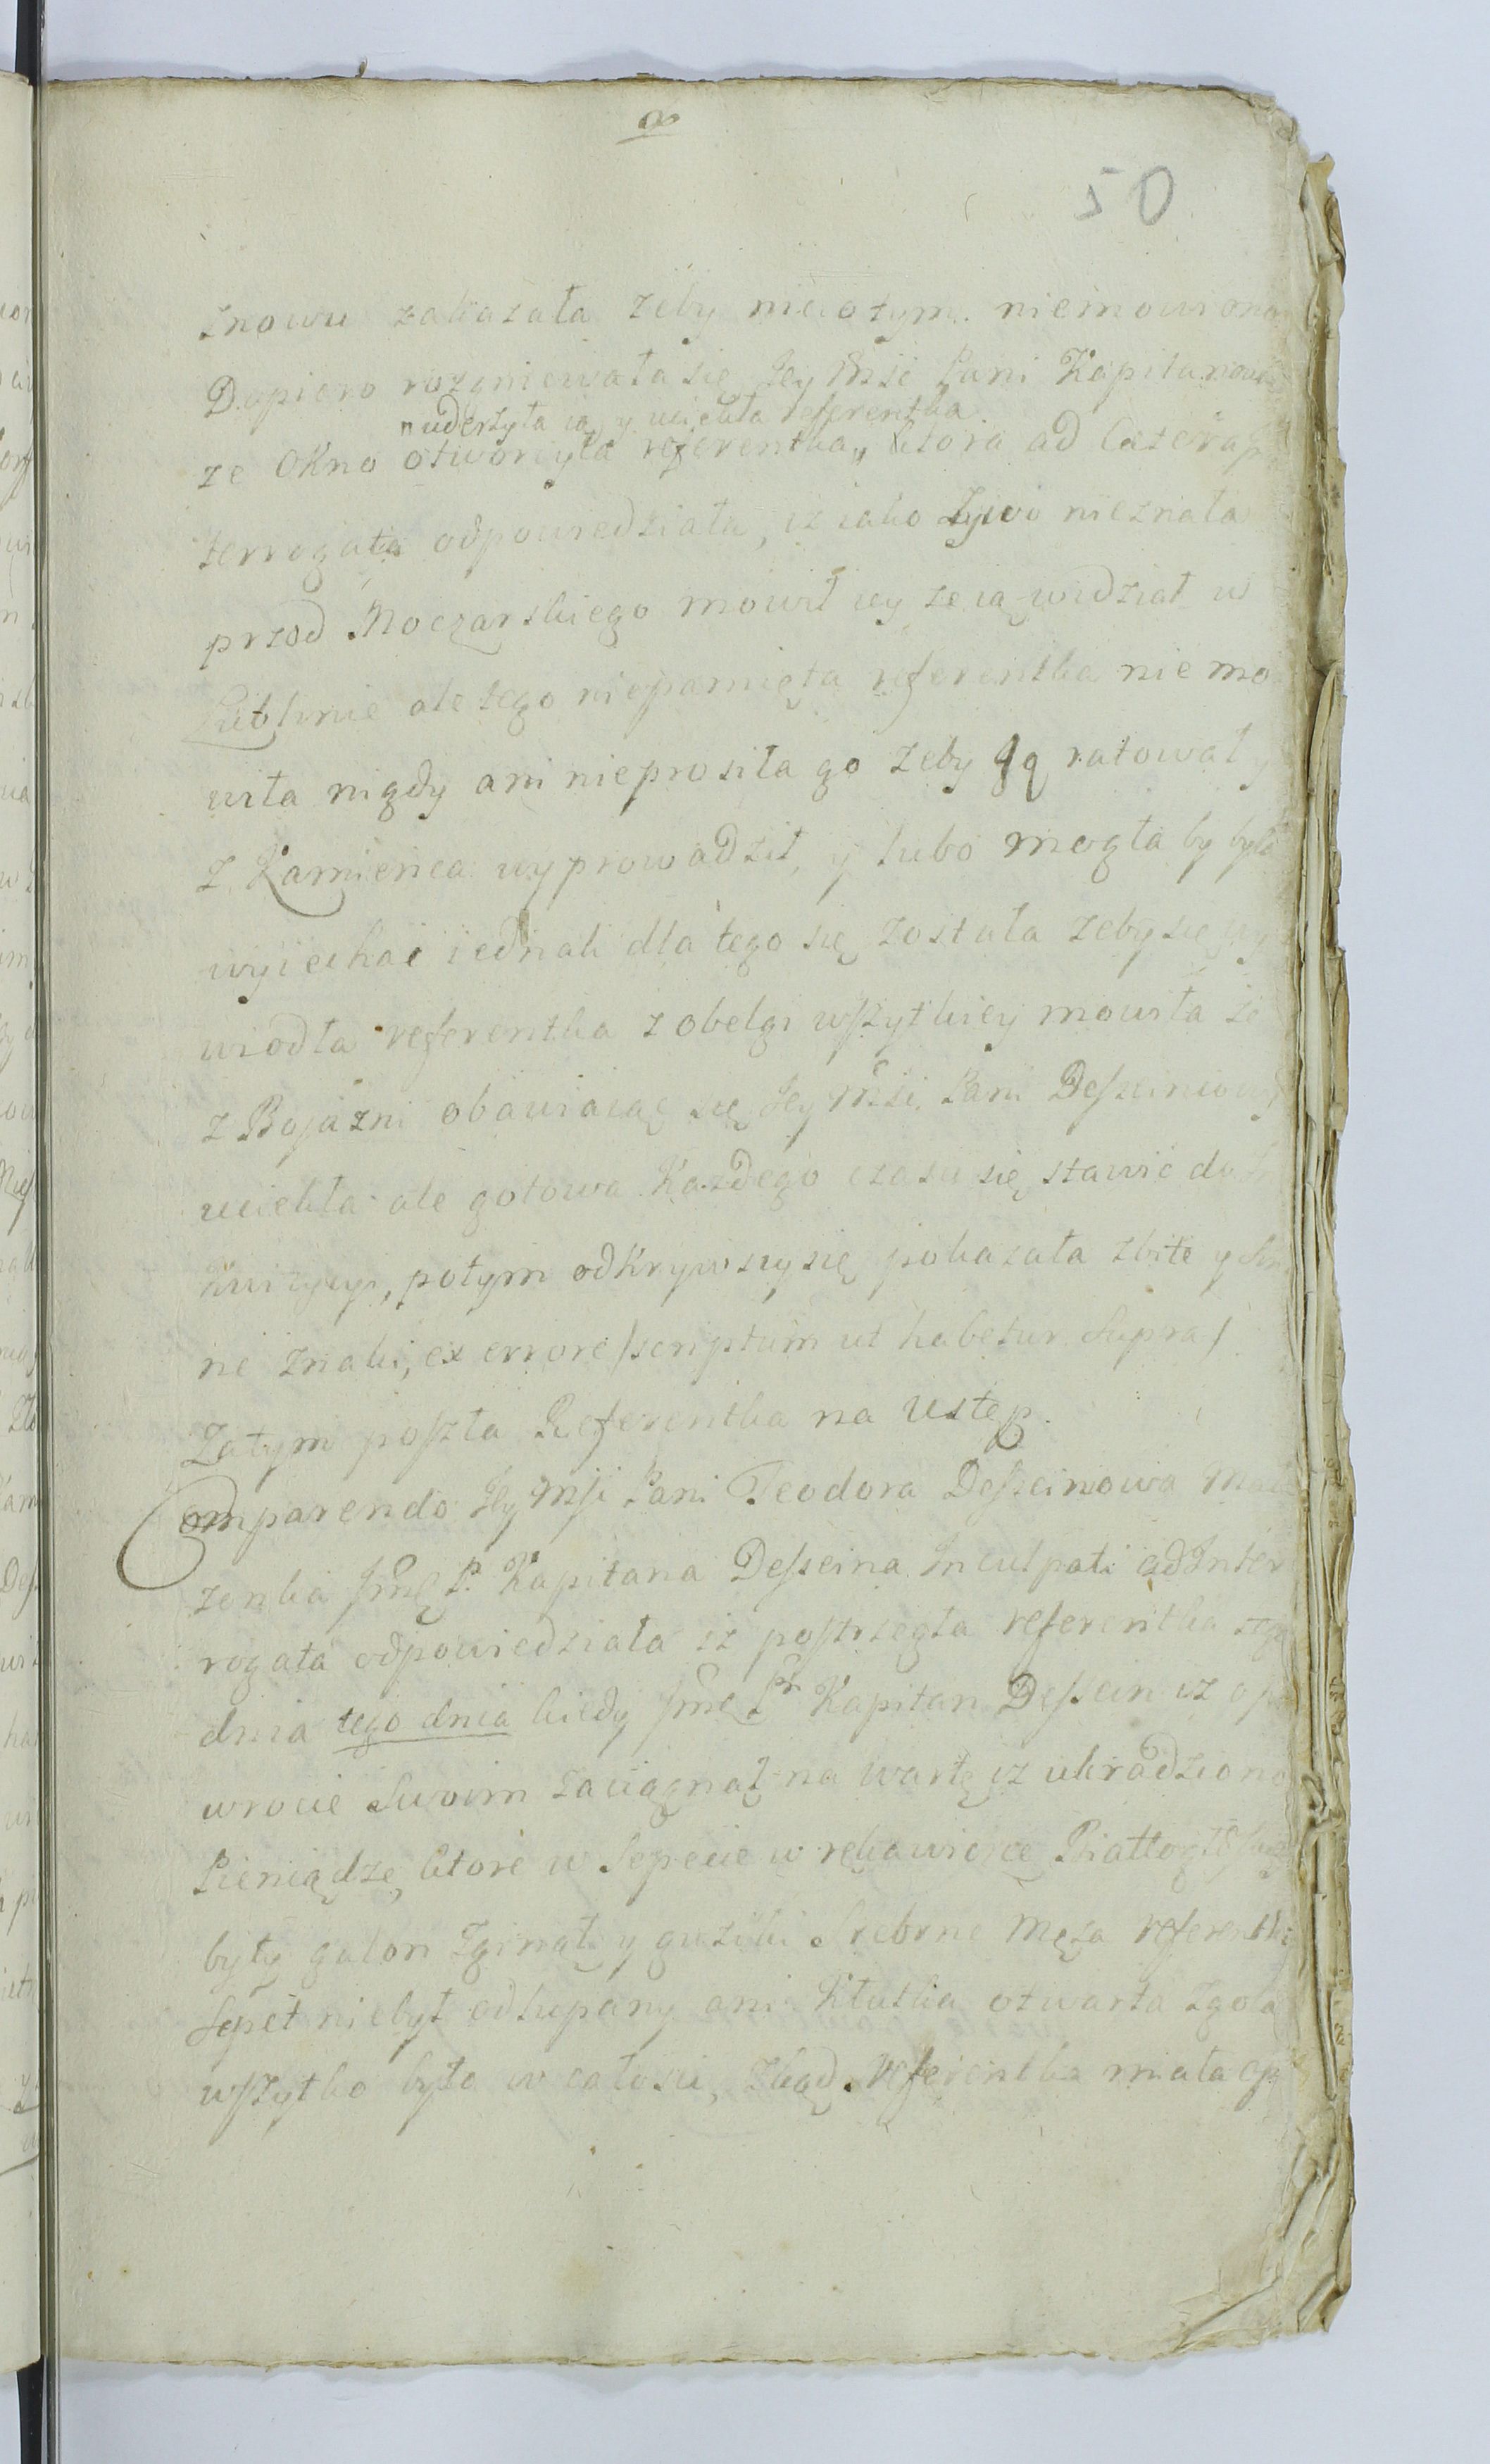 8
50
znowu zakazała zeby nicotym niemowiono
Dopiero rozgniewała się Jey Msć Pani Kapitanowa
" uderzyła ią y uciekła referentka
ze okno otworzyła referentka " ktora ad Cætera
terrogata odpowiedziała, iz iako zywo nieznała
przod Moczarskiego mowił iey ze ią widział w
Lublinie ale tego niepamięta referentka nie mo
wiła nigdy ani nieprosiła go zeby Ją ratował y
z Kamienca wyprowadził, y lubo mogła by była
wyiechać iednak dla tego się została zeby się wy
wiodła referentka z obelgi wszytkiey mowiła ze
z Bojazni obawiaiąc się Jey Msci Pani Desseinowy
uciekła ale gotowa Kazdego czasu się stawić do In
kwizycyi, potym odkrywszy się pokazała zbite y Sin
ne znaki, ex errore /scriptum ut habetur Supra/
Zatym poszła Referentka na Ustęp.
Comparendo Jey Msci Pani Teodora Desseinowa Mał
zonka Jmę P. Kapitana Desseina Inculpati ad Inter
rogata odpowiedziała iz postrzegła referentka tego
dnia tego dnia kiedy Jmę Pn Kapitan Dessein iz o po
wrocie Swoim zaciągnął na wartę iz ukradziono
Pieniądze, ktore w Sepecie w rękawicze
były galon zginął y guziki Srebrne Męza referentki
Sepet niebył odłupany ani Kłutka otwarta zgoła
wszytko było w całosci, zkąd referentka miała